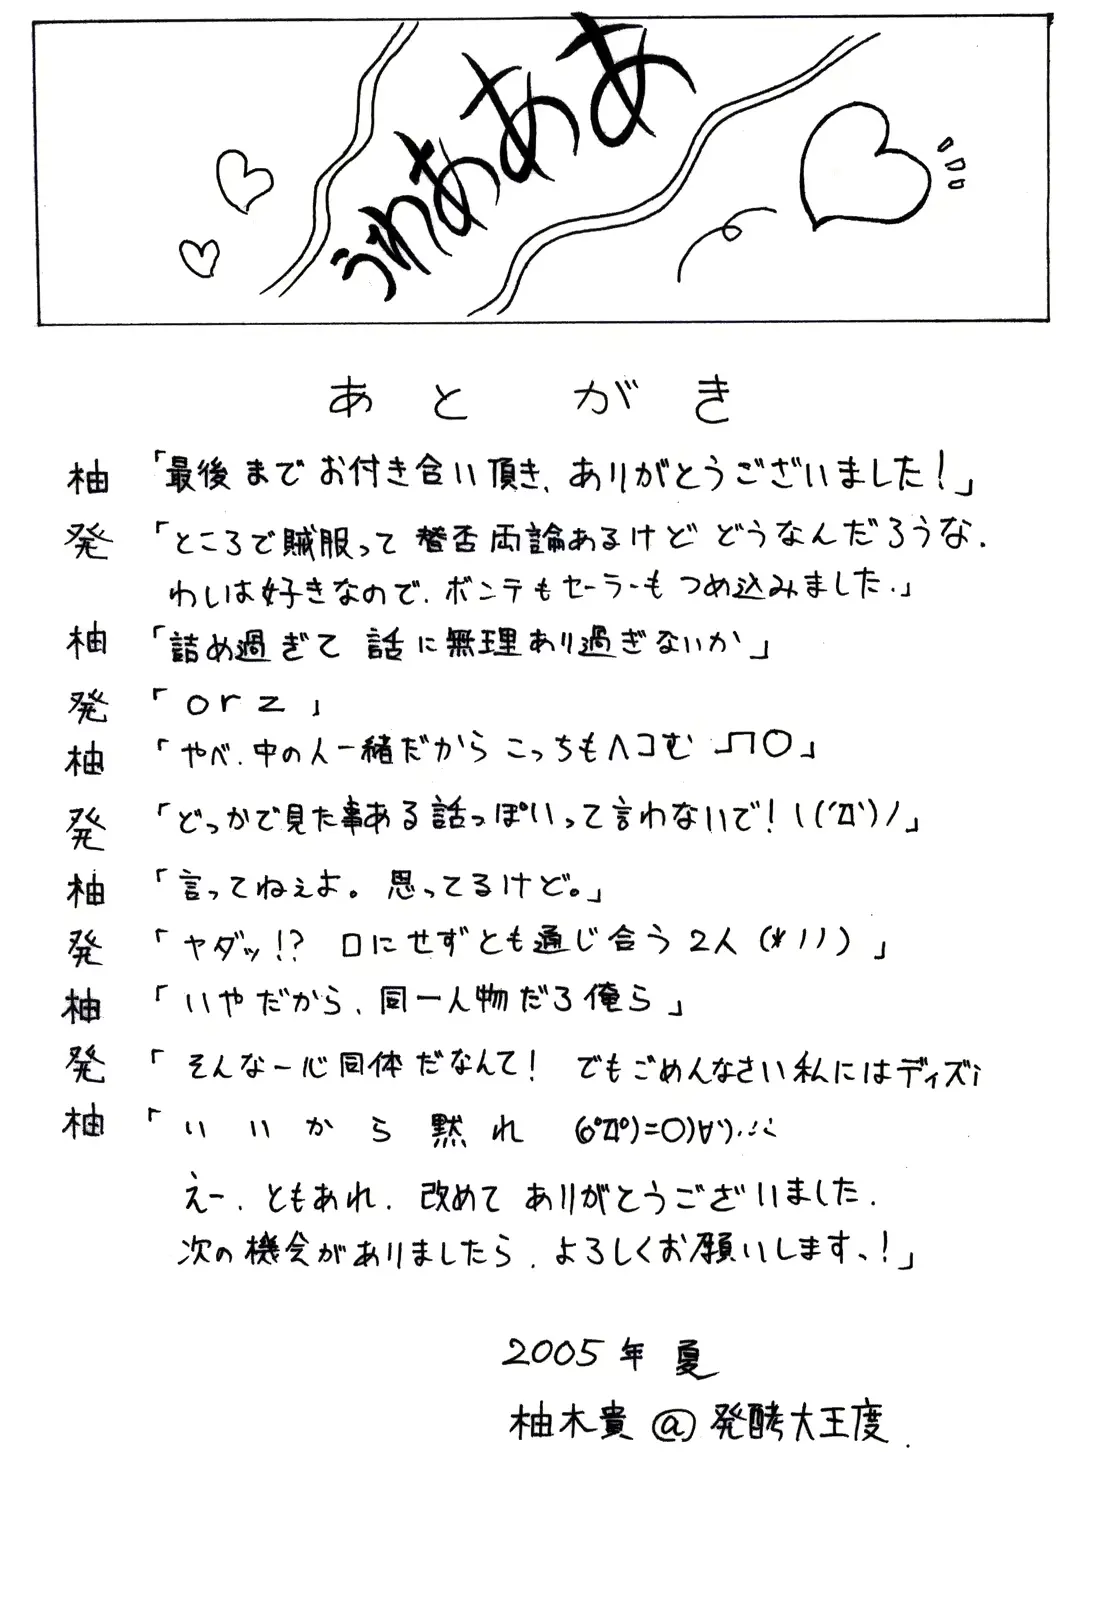 うわあああ
あとがき
柚「最後までお付き合い頂き、ありがとうございました！」
発「ところで賊服って賛否両論あるけど どうなんだろうな.
わしは好きなので、ボンテもセーラーもつめ込みました.」
柚「詰め過ぎて 話に無理あり過ぎないか」
発「orz」
柚「やべ、中の人一緒だからこっちもヘコむ _| ̄|○」
発「どっかで見た事ある話っぽいって言わないで！ヽ(´Д`)ノ」
柚「言ってねぇよ。思ってるけど。」
発「ヤダッ!? 口にせずとも通じ合う2人(*ノノ)」
柚「いやだから、同一人物だろ俺ら」
発「そんな一心同体だなんて！ でもごめんなさい私にはディズi
柚「いいから黙れ (o゚Д゚)=○)∀`)
えー、ともあれ、改めてありがとうございました.
次の機会がありましたら、よろしくお願いします、！」
2005年 夏
柚木貴@発酵大王度.